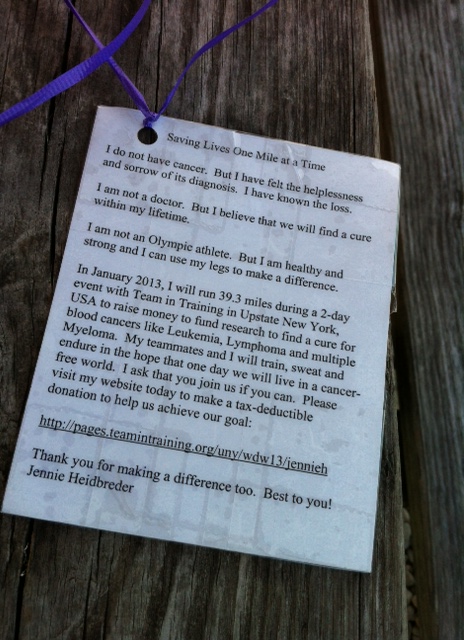 Saving Lives One Mile at a Time
I do not have cancer. But I have felt the helplessness
and sorrow of its diagnosis. I have known the loss.
I am not a doctor. But I believe that we will find a cure
within my lifetime.
I am not an Olympic athlete. But I am healthy and
strong and I can use my legs to make a difference.
In January 2013, I will run 39.3 miles during a 2-day
event with Team in Training in Upstate New York,
USA to raise money to fund research to find a cure for
blood cancers like Leukemia, Lymphoma and multiple
Myeloma. My teammates and I will train, sweat and
endure in the hope that one day we will live in a cancer-
free world. I ask that you join us if you can. Please
visit my website today to make a tax-deductible
donation to help us achieve our goal:
http://pages.teamintraining.org/uny/wdw13/jennieh
Thank you for making a difference too. Best to you!
Jennie Heidbreder